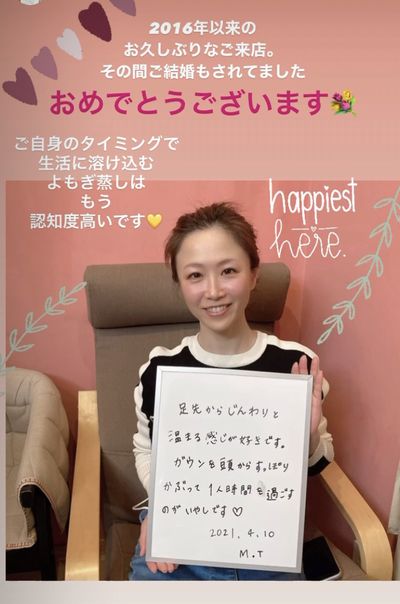 2016年以来の
お久しぶりなご来店。
その間ご結婚もされてました
おめでとうございます💐
ご自身のタイミングで
生活に溶け込む
よもぎ蒸しは
もう
認知度高いです💛
happiest
here.
足先からじんわりと
温まる感じが好きです。
ガウンを頭からすっぽり
かぶって1人時間を過ごす
のがいやしです♡
2021.4.10
M.T